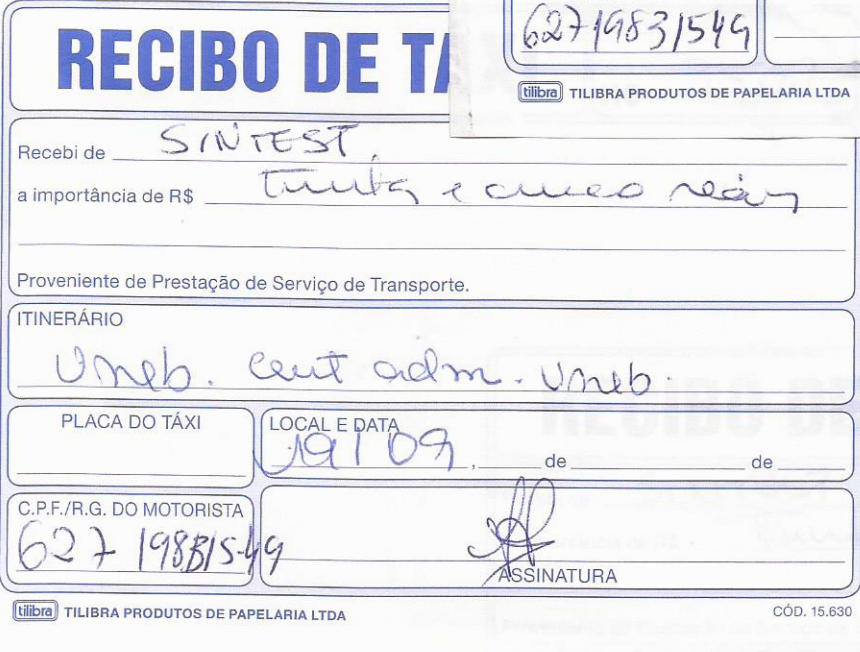 62719831549
tilibra TILIBRA PRODUTOS DE PAPELARIA LTDA
RECIBO DE TA
Recebi de SINTEST
a importância de R$ Trinta e cinco reais
Proveniente de Prestação de Serviço de Transporte.
ITINERÁRIO
Uneb. Cent adm. Uneb.
PLACA DO TÁXI
LOCAL E DATA
19/09, de de
C.P.F./R.G. DO MOTORISTA
ASSINATURA
tilibra TILIBRA PRODUTOS DE PAPELARIA LTDA
CÓD. 15.630